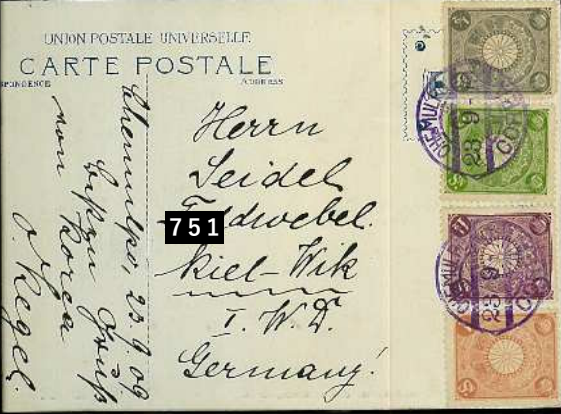 UNION POSTALE UNIVERSELLE
CARTE POSTALE
SPONDENCE
ADDRESS
Chemulpo, 23.9.09
Gruß
von Korea
Herrn
Seidel
Feldwebel.
751
Kiel-Wik
I. W. D.
Germany!
CHEMULPO
23 9
CHEMULPO
23 9